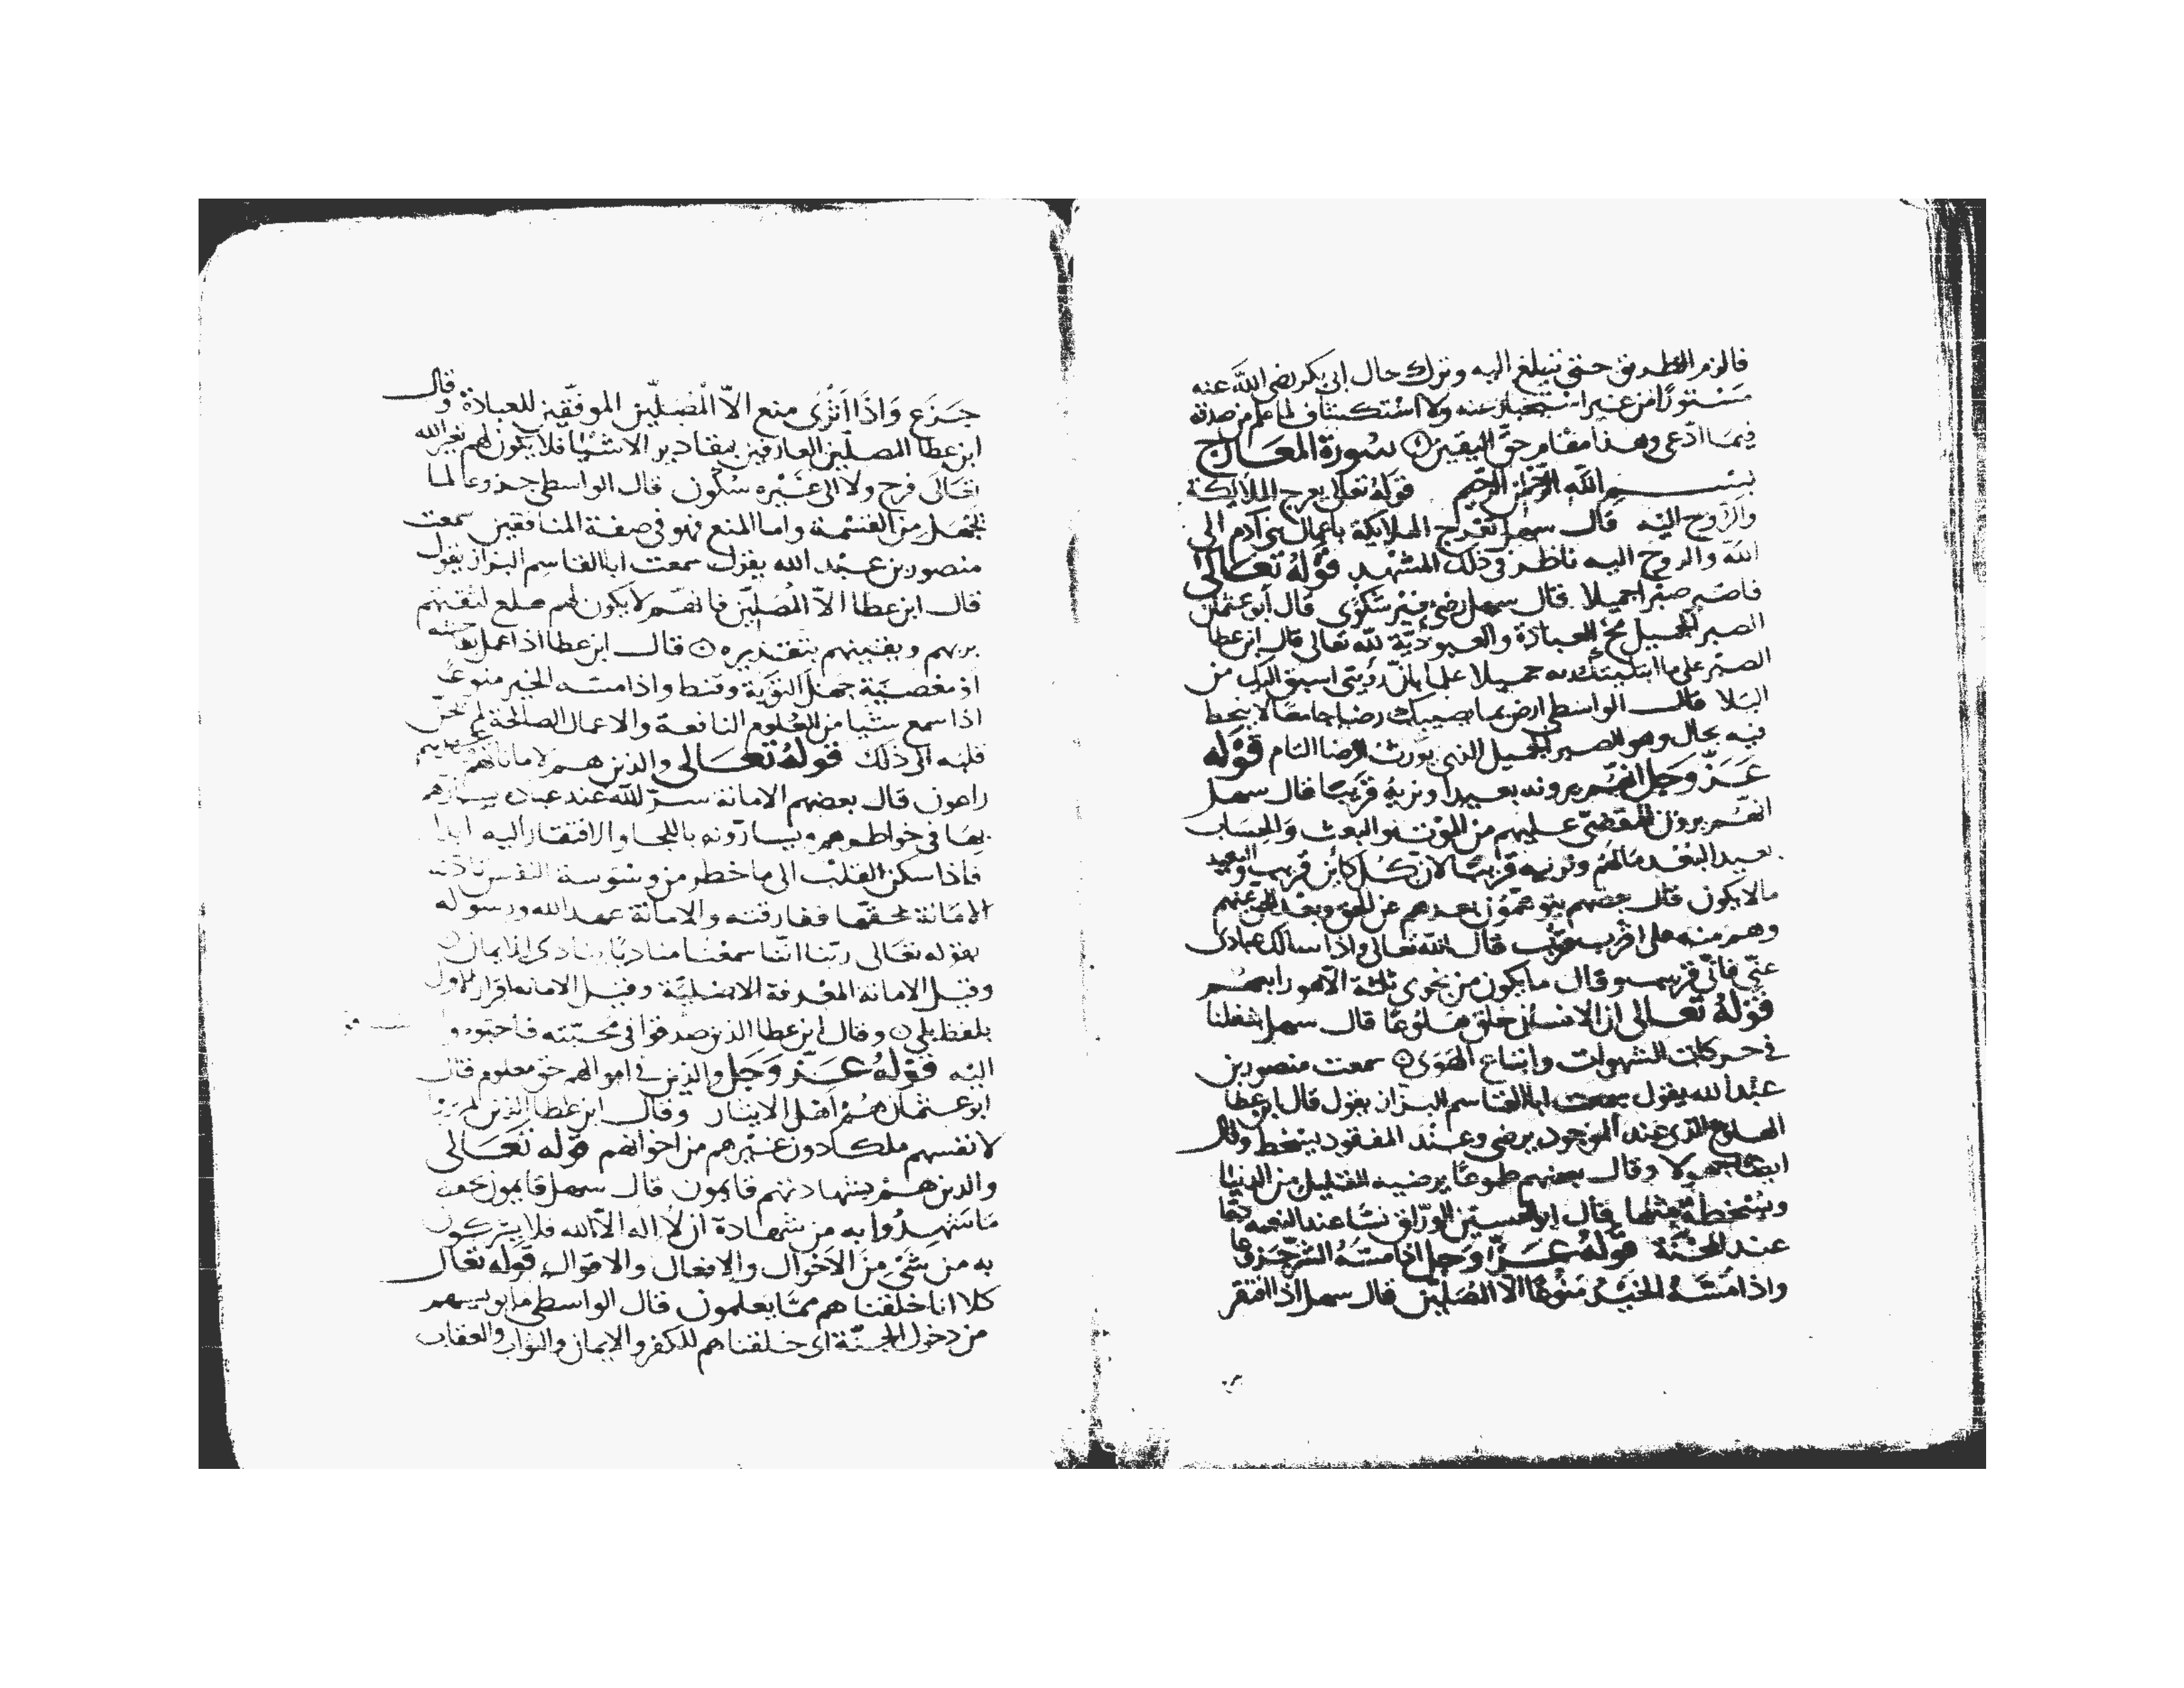 فالزم الطريق حتى تبلغ اليه وترك حال ابى بكر رضى الله عنه
مستورا من غير استخبار عنه ولا استكشاف لما علم من صدقه
فيما ادعى وهذا مقام حق اليقين سورة المعارج
بسم الله الرحمن الرحيم قوله تعالى يعرج الملائكة
والروح اليه قال سهل تعرج الملايكة باعمال بنى آدم الى
الله والروح اليه ناظر فى ذلك المشهد قوله تعالى
فاصبر صبرا جميلا قال سهل رضى من غير شكوى قال أبو عثمان
الصبر الجميل مخ العبادة والعبودية لله تعالى قال ابن عطا
الصبر على ما ابتليتك به جميلا علما بان رؤيتى اسبق اليك من
البلا قال الواسطى ارض بما يصيبك رضا جامعا لا يتخط
فيه بحال وهو الصبر الجميل الذى يورث الرضا التام قوله
عز وجل انهم يرونه بعيدا ونريه قريبا قال سهل
انهم يرون المقضى عليهم من الموت والبعث والحساب
بعيدا لبعد مالهم ونريه قريبا لان كل كائن قريب والبعيد
مالا يكون قال بعضهم يتوهمون بعدهم عن الحق وبعد الحق عنهم
وهم منه على اقرب قريب قال الله تعالى واذا سالك عبادى
عنى فانى قريب وقال ما يكون من نجوى ثلثة الا هو رابعهم
قوله تعالى ان الانسان خلق هلوعا قال سهل شغلنا
فى حركات الشهوات واتباع الهوى سمعت منصور بن
عبد الله يقول سمعت ابا القاسم البزاز يقول قال ابن عطا
الهلوع الذى عند الموجود يرضى وعند المفقود يسخط وقال
ايضا جهولا وقال بعضهم طموعا يرضيه القليل من الدنيا
ويسخطه مثلها قال ابو الحسين الوراق نسا عند النعمه دعا
عند المحنة قوله عز وجل اذا مسه الشر جزوعا
واذا مسه الخير منوعا الا المصلين قال سهل اذا افتقر
جزع واذا اثرى منع الا المصلين الموفقين للعبادة وقال
ابن عطا المصلين العارفين بمقادير الاشيا فلا يكون لهم بغير الله
تعالى فرح ولا الى غيره سكون قال الواسطى جزوعا لما
يجهل من القسمة واما المنع فهو فى صفة المنافقين سمعت
منصور بن عبد الله يقول سمعت ابا القاسم البزاز يقول
قال ابن عطا الا المصلين فانهم لا يكون لهم هلع لثقتهم
بربهم ويقينهم بتقديره قال ابن عطا اذا عمل
او معصية جهل التوبة وقنط واذا مسه الخير منوعا
اذا سمع شيا من العلوم النافعة والاعمال الصالحة لم
قلبه الى ذلك قوله تعالى والذين هم لاماناتهم وعهدهم
راعون قال بعضهم الامانة سر لله عند عباده يسارهم
بها فى خواطرهم ويسارونه باللجا والافتقار اليه ابدا
فاذا سكن القلب الى ما خطر من وسوسة النفس
الامانة بحقها ففارقته والامانة عهد الله ورسوله
بقوله تعالى ربنا اننا سمعنا مناديا ينادى للايمان
وقيل الامانة المعرفة الاصلية وقيل الامانه اقرار الاول
بلفظ بلى وقال ابن عطا الذين صدقوا فى محبته فاجتهدوا
اليه قوله عز وجل والذين فى اموالهم حق معلوم قال
ابو عثمان هم اهل الايثار وقال ابن عطا الذين لم يروا
لانفسهم ملكا دون غيرهم من اخوانهم قوله تعالى
والذين هم بشهادتهم قايمون قال سهل قايمون بحفظ
ما شهدوا به من شهادة ان لا اله الا الله فلا يشركون
به من شى من الاحوال والافعال والاقوال قوله تعالى
كلا انا خلقناهم مما يعلمون قال الواسطى ما يويسهم
من دخول الجنة اى خلقناهم للكفر والايمان والثواب والعقاب